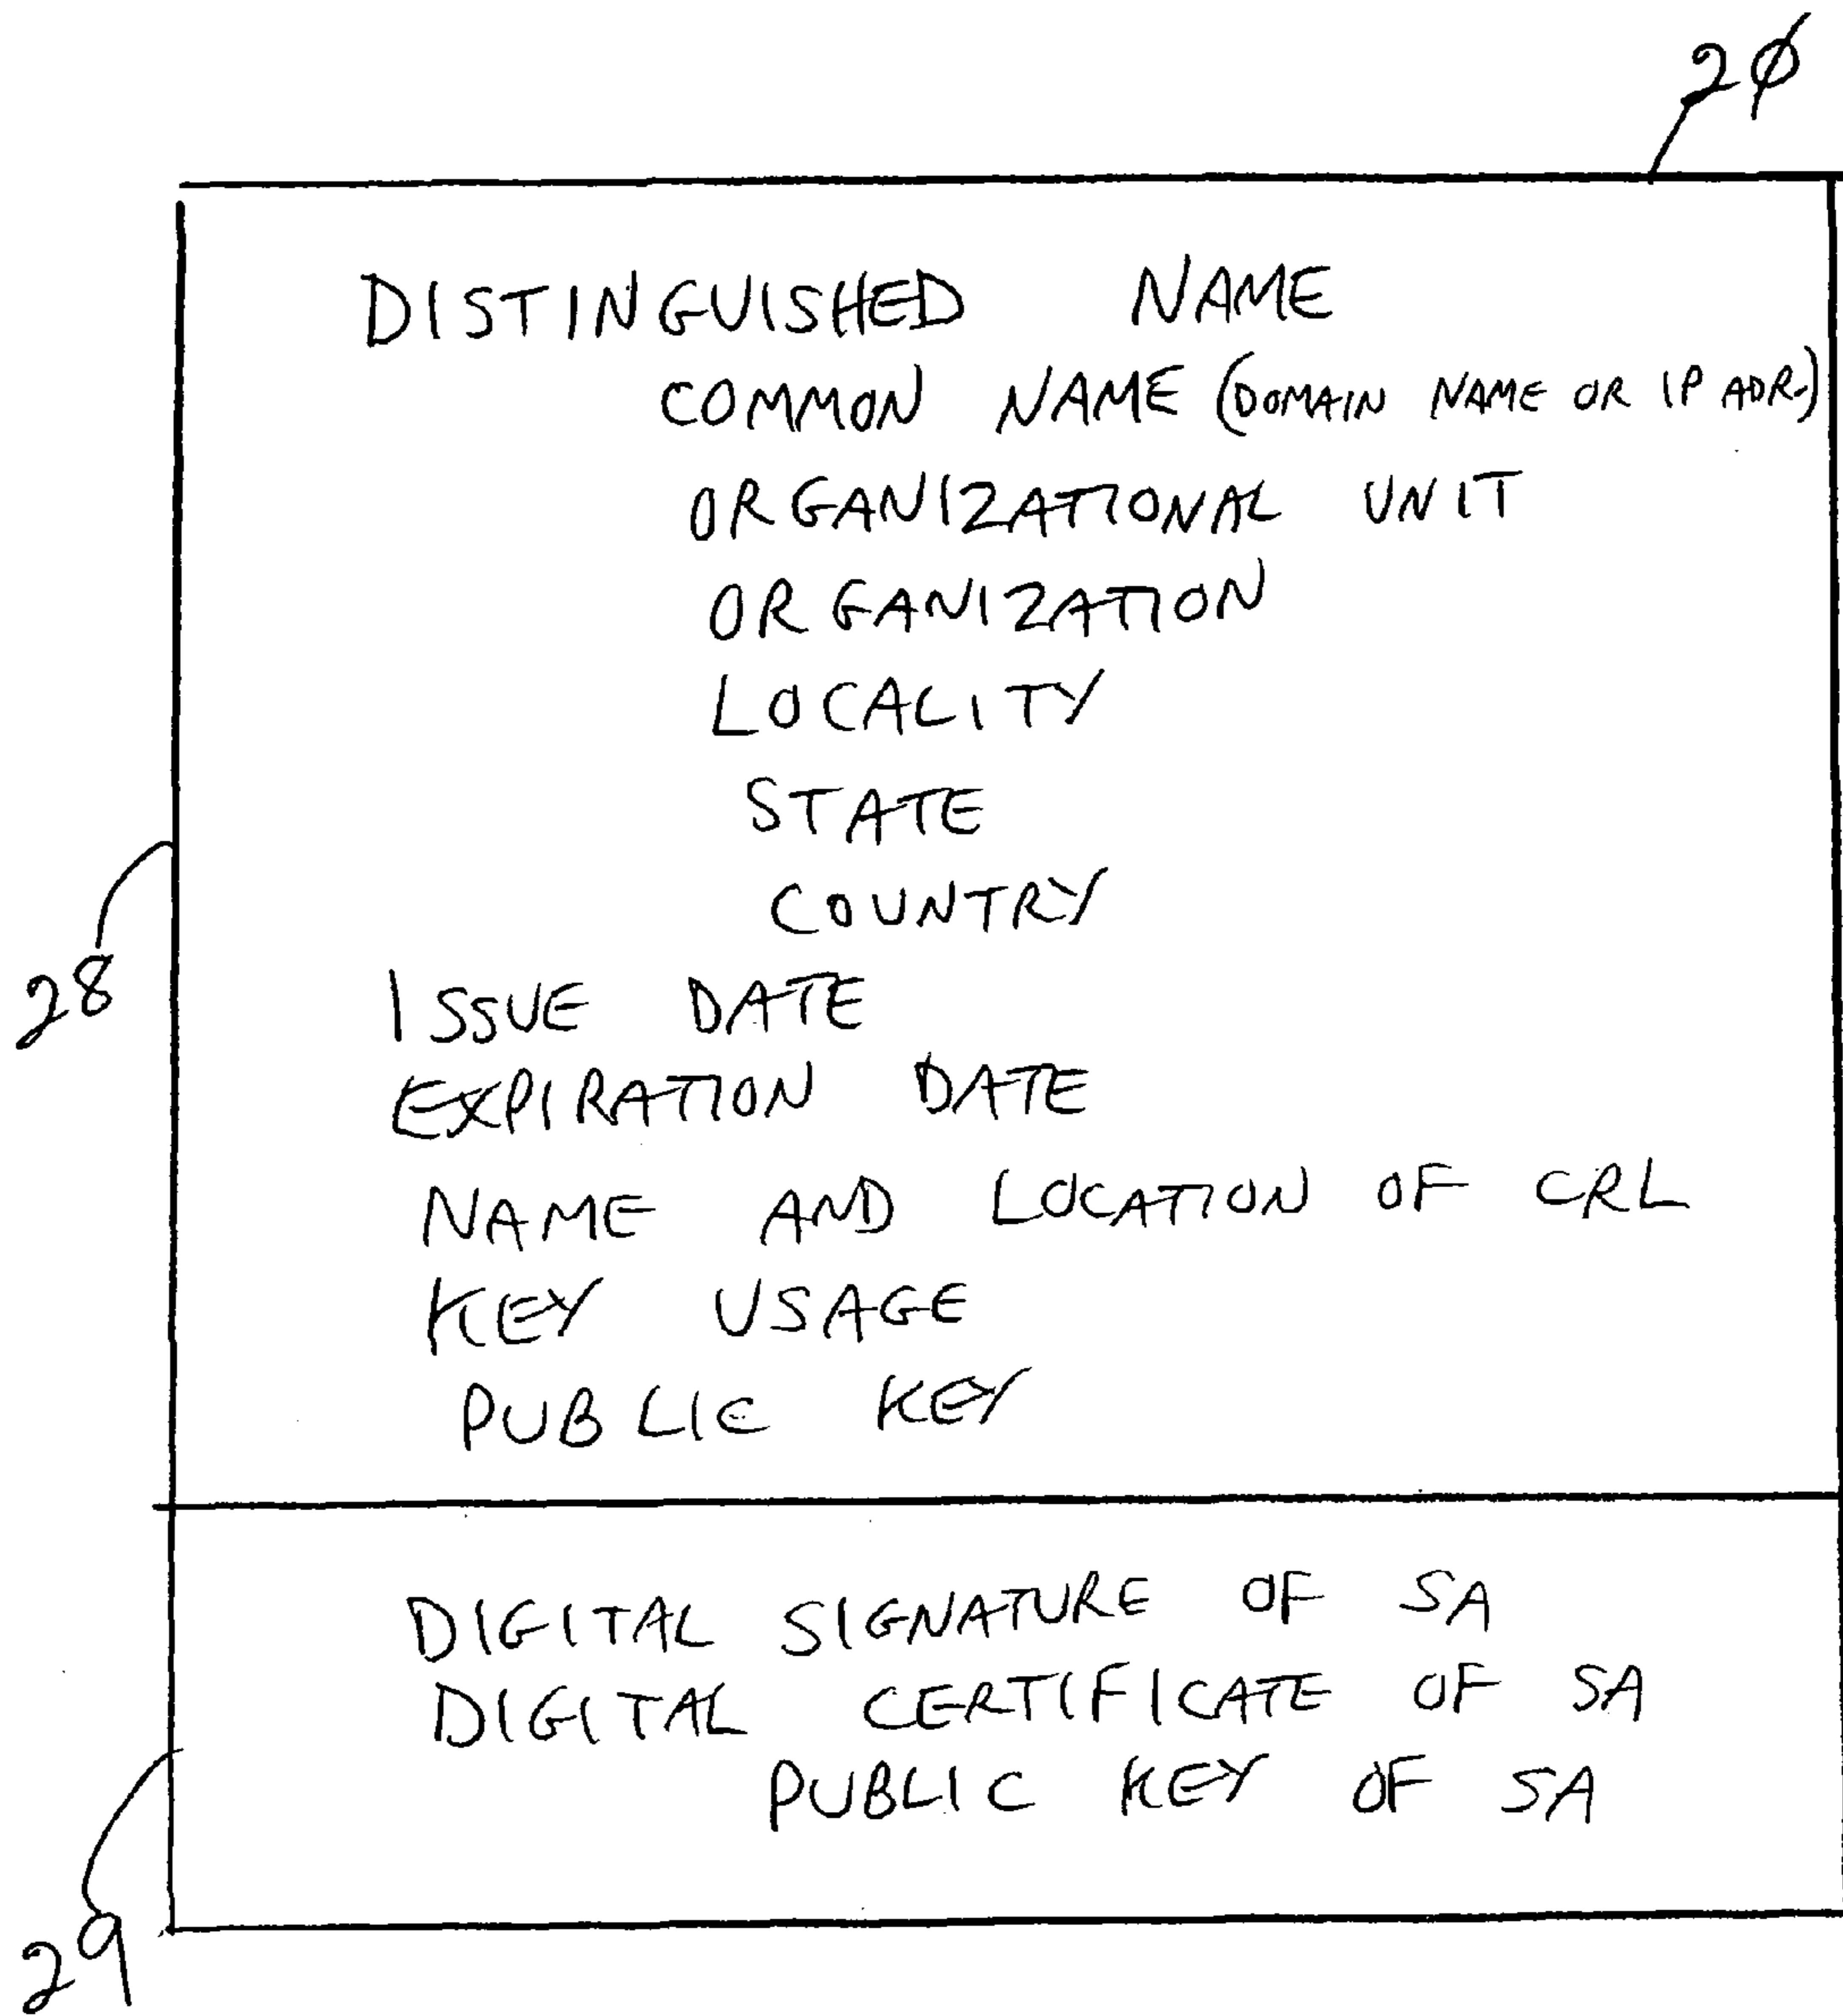 20
DISTINGUISHED NAME
COMMON NAME (DOMAIN NAME OR IP ADR.)
ORGANIZATIONAL UNIT
ORGANIZATION
LOCALITY
STATE
COUNTRY
28
ISSUE DATE
EXPIRATION DATE
NAME AND LOCATION OF CRL
KEY USAGE
PUBLIC KEY
DIGITAL SIGNATURE OF SA
DIGITAL CERTIFICATE OF SA
PUBLIC KEY OF SA
29